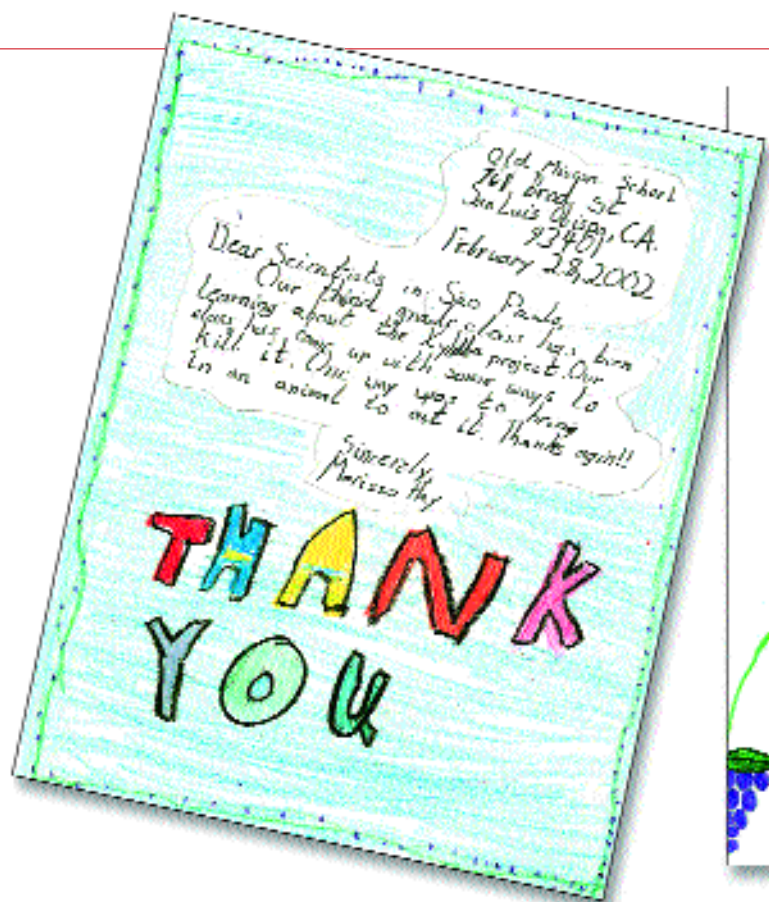 Old Mission School
761 Broad St
San Luis Obispo, CA.
93401
February 28, 2002
Dear Scientists in São Paulo,
Our third grade class has been
learning about the Xylella project. Our
class has come up with some ways to
kill it. One way was to bring
in an animal to eat it. Thanks again!!
Sincerely,
Marissa
THANK
YOU